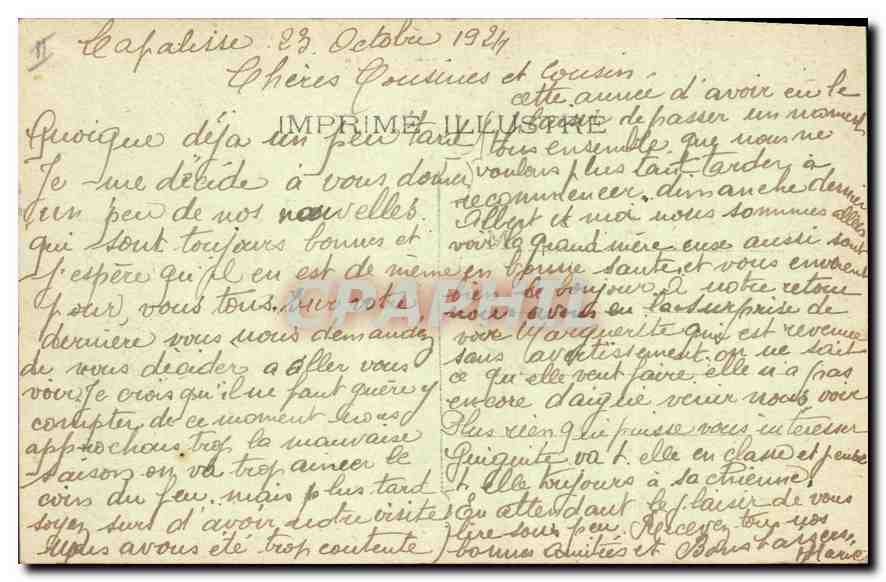 Lapalisse 23 Octobre 1924
Chères Cousines et Cousin.
IMPRIMÉ ILLUSTRÉ
Quoique déja un peu tard
Je me décide à vous donner
un peu de nos nouvelles.
qui sont toujours bonnes et
j'espère qu'il en est de même
pour, vous tous. sur votre
dernière vous nous demandez
de vous décider a aller vous
voir, Je crois qu'il ne faut guère y
compter de ce moment nous
approchons trop la mauvaise
saison on va trop aimer le
coin du feu. mais plus tard
soyez surs d'avoir notre visite
nous avons été trop contente
cette année d'avoir eu le
plaisir de passer un moment
tous ensemble que nous ne
voulons plus tant tarder à
recommencer. dimanche dernier
Albert et moi nous sommes allés
voir la grand'mère eux aussi sont
en bonne santé et vous envoient
bien le bonjour. à notre retour
nous avons eu la surprise de
voir Marguerite qui est revenue
sans avertissement on ne sait
ce qu'elle veut faire. elle n'a pas
encore daigné venir nous voir
Plus rien qui puisse vous intéresser
va t. elle en classe et pense
t. elle toujours à sa chienne.
En attendant le plaisir de vous
lire sous peu. Recevez tous nos
bonnes amitiés et Bons baisers
Marie
CPAPHIL